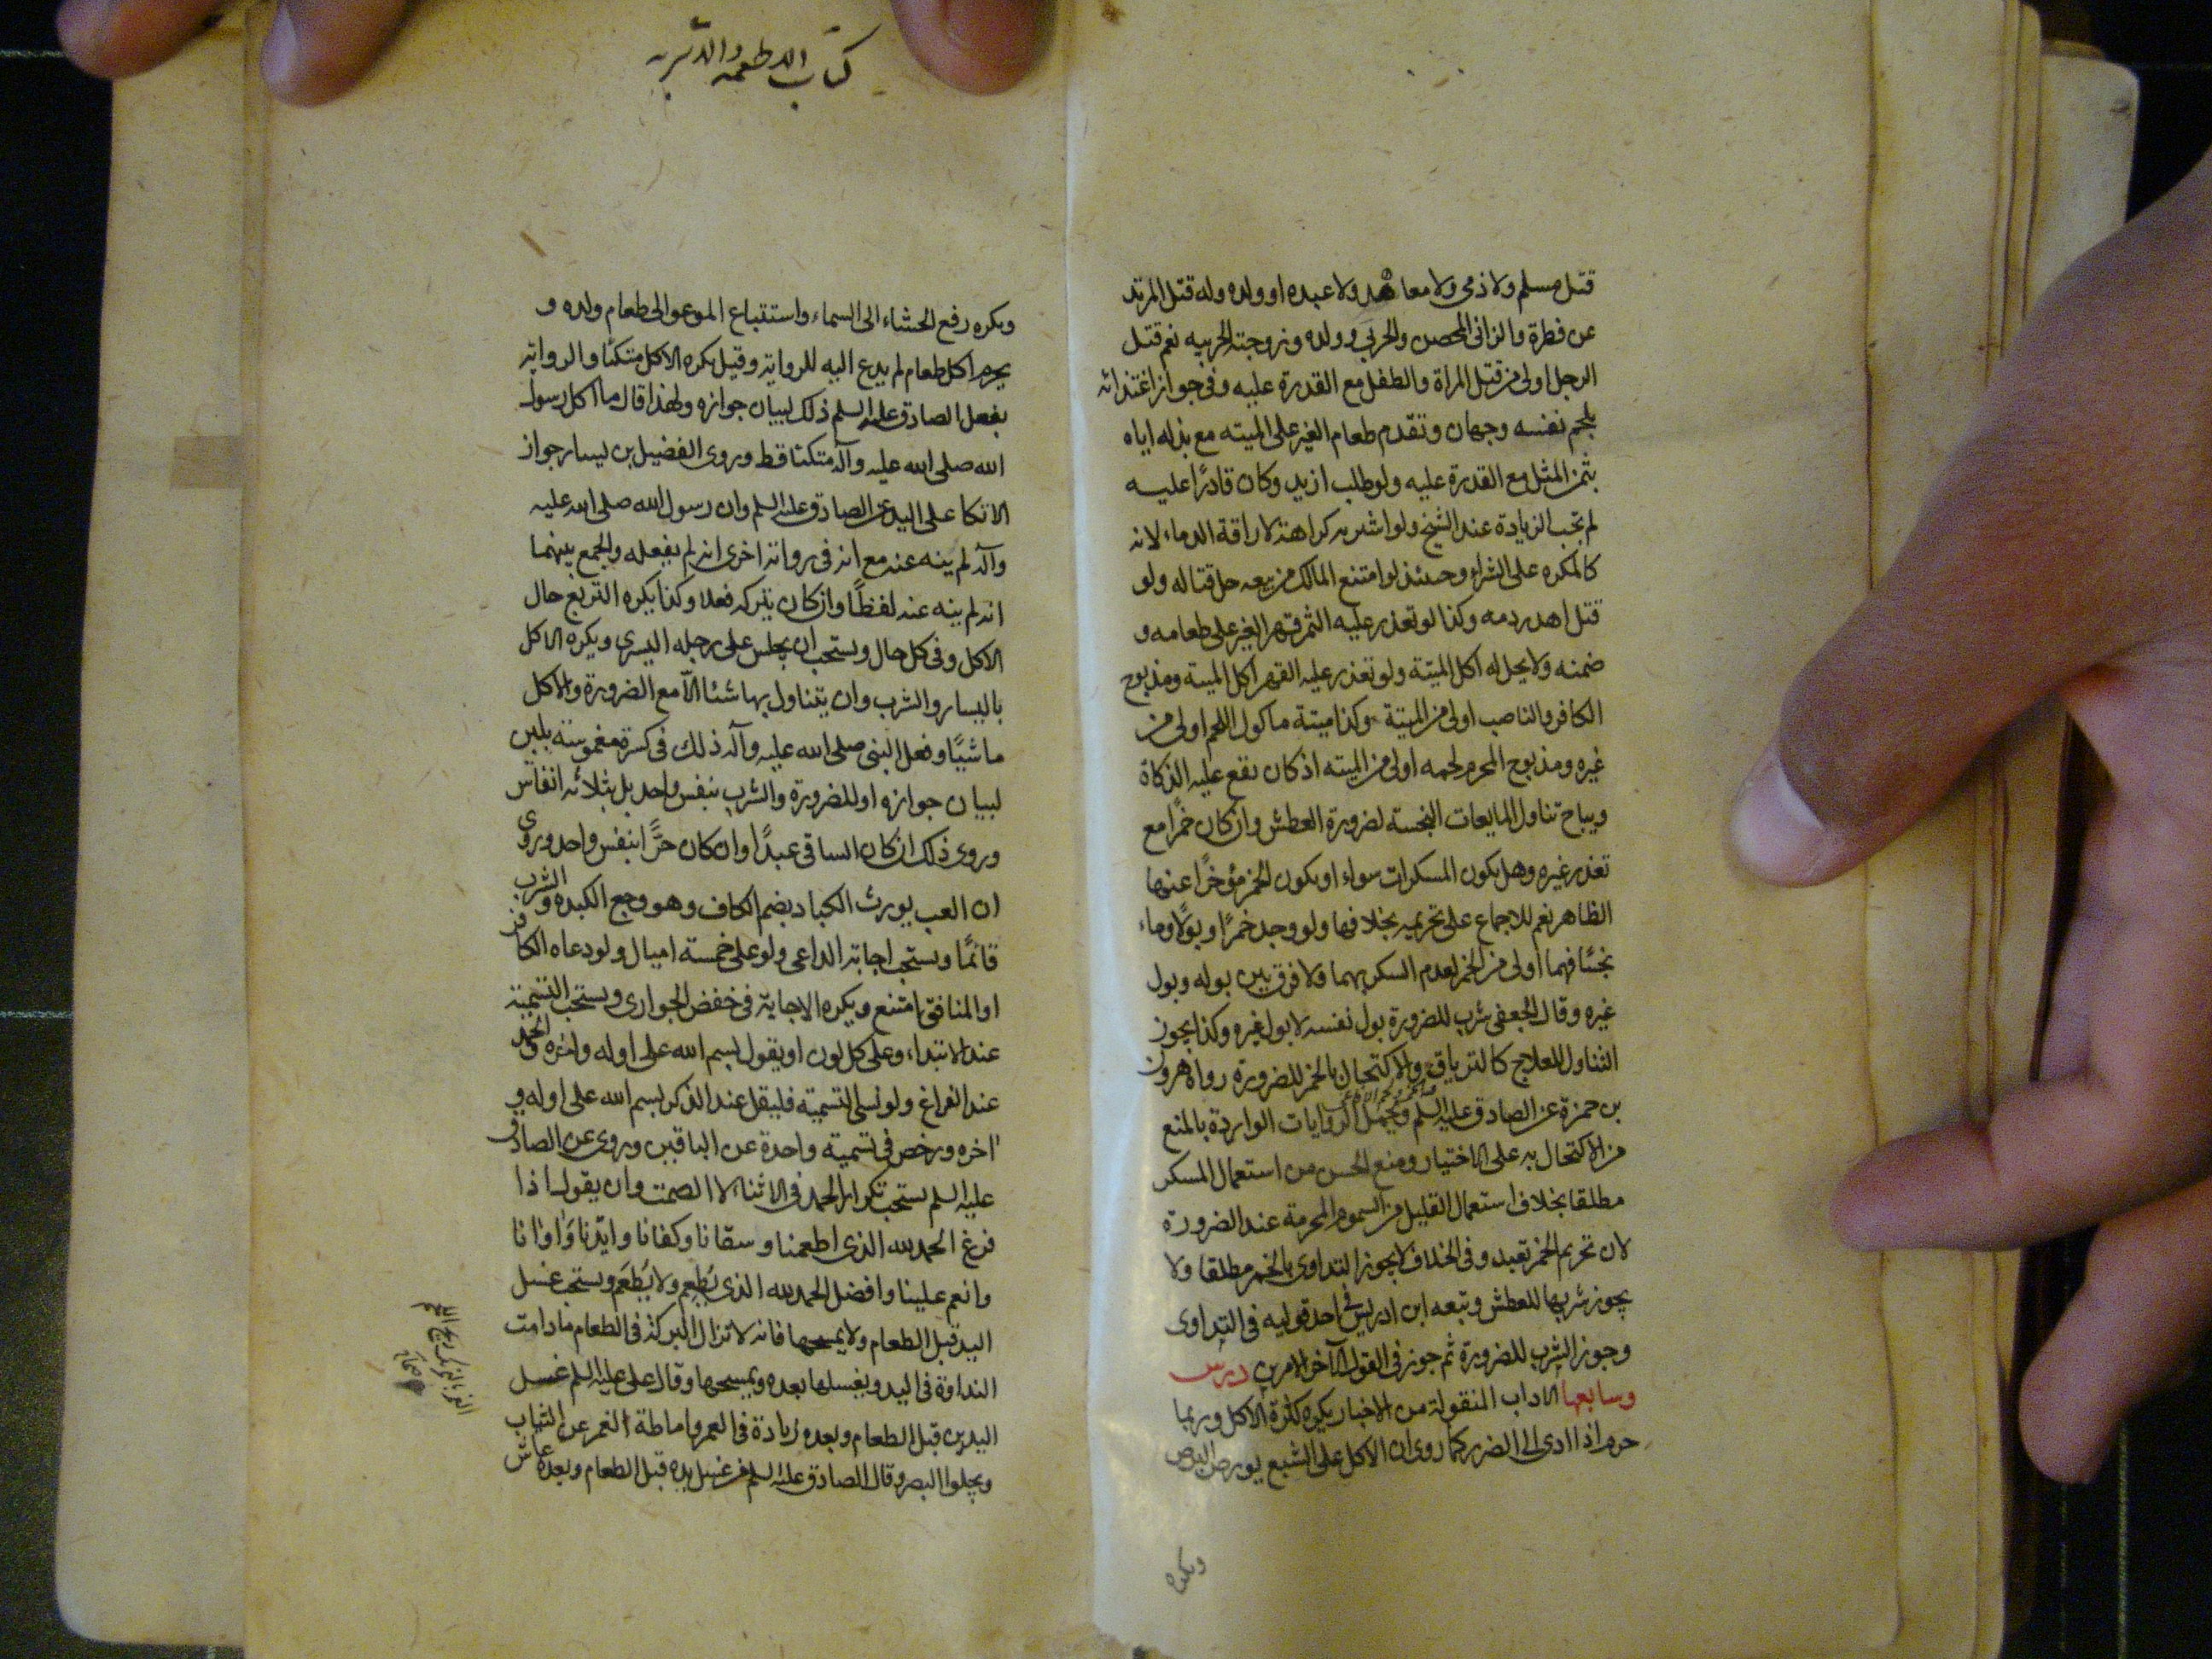 قتل مسلم ولا ذمى ولا معاهد ولا عبده او ولده وله قتل المرتد
عن فطرة والزانى المحصن والحربى وولده وزوجته الحربيه نعم قتل
الرجل اولى من قتل المراة والطفل مع القدرة عليه وفى جواز اغتذائه
بلحم نفسه وجهان وتقدم طعام الغير على الميته مع بذله اياه
بثمن المثل مع القدرة عليه ولو طلب ازيد وكان قادرًا عليه
لم تجب الزيادة عند الشيخ ولو اشتريه كراهة لاراقة الدماء لانه
كالمكره على الشراء وحينئذ لو امتنع المالك من بيعه حل قتاله ولو
قتل اهدر دمه وكذا لو تعذر عليه الثمن قهر الغير على طعامه و
ضمنه ولا يحل له اكل الميتة ولو تعذر عليه القهر اكل الميتة ومذبوح
الكافر والناصب اولى من الميتة وكذا ميتة ماكول اللحم اولى من
غيره ومذبوح المحرم لحمه اولى من الميته اذ كان يقع عليه الذكاة
ويباح تناول المايعات النجسة لضرورة العطش وان كان خمرًا مع
تعذر غيره وهل يكون المسكرات سواء او يكون الخمر مؤخرًا عنها
الظاهر نعم للاجماع على تحريمه بخلافها ولو وجد خمرًا وبولًا وماء
نجسًا فهما اولى من الخمر لعدم السكر بهما ولا فرق بين بوله وبول
غيره وقال الجعفى يشرب للضرورة بول نفسه لا بول غيره وكذا يجوز
التناول للعلاج كالترياق والاكتحال بالخمر للضرورة رواه هرون
بن حمزة عن الصادق عليه السلم ويحمل الروايات الواردة بالمنع
من الاكتحال به على الاختيار ومنع الحسن من استعمال المسكر
مطلقا بخلاف استعمال القليل من السموم المحرمة عند الضرورة
لان تحريم الخمر تعبد وفى الخلاف لا يجوز التداوى بالخمر مطلقا ولا
يجوز شربها للعطش وتبعه ابن ادريس فى احد قوليه فى التداوى
وجوز الشرب للضرورة ثم جوز فى القول الآخر الامرين درس
وسابعها الاداب المنقولة من الاخبار يكره كثرة الاكل وربما
حرم اذا ادى الى الضرر كما روى ان الاكل على الشبع يورث البرص
ويكره
كتاب الاطعمه والاشربه
ويكره رفع الجشاء الى السماء واستتباع المدعو الى طعام ولده و
يحرم اكل طعام لم يدع اليه للرواية وقيل يكره الاكل متكئا والرواية
بفعل الصادق عليه السلم ذلك لبيان جوازه ولهذا قال ما اكل رسول
الله صلى الله عليه وآله متكئا قط وروى الفضيل بن يسار جواز
الاتكا على اليد عن الصادق عليه السلم وان رسول الله صلى الله عليه
وآله لم ينه عنه مع انه فى رواية اخرى انه لم يفعله والجمع بينهما
انه لم ينه عنه لفظًا وان كان يتركه فعلا وكذا يكره التربع حال
الاكل وفى كل حال ويستحب ان يجلس على رجله اليسرى ويكره الاكل
باليسار والشرب وان يتناول بها شئا الّا مع الضرورة والاكل
ماشيًا وفعل النبى صلى الله عليه وآله ذلك فى كسرة مغموسة بلبن
لبيان جوازه او للضرورة والشرب بنفس واحد بل بثلاثه انفاس
وروى ذلك ان كان الساقى عبدًا وان كان حرًّا فبنفس واحد وروى
ان العب يورث الكباد بضم الكاف وهو وجع الكبد ويكره الشرب
قائمًا ويستحب اجابة الداعى ولو على خمسة اميال ولو دعاه الكافر
او المنافق امتنع ويكره الاجابة فى خفض الجوارى ويستحب التسمية
عند الابتداء وعلى كل لون او يقول بسم الله على اوله واخره والحمد
عند الفراغ ولو نسى التسمية فليقل عند الذكر بسم الله على اوله و
اخره ورخص فى تسمية واحدة عن الباقين وروى عن الصادق
عليه السلم يستحب تكرار الحمد فى الاثناء لا الصمت وان يقول اذا
فرغ الحمد لله الذى اطعمنا وسقانا وكفانا وايّدنا وآوانا
وانعم علينا وافضل الحمد لله الذى يُطعِم ولا يُطعَم ويستحب غسل
اليد قبل الطعام ولا يمسحها فانه لا تزال البركة فى الطعام ما دامت
النداوة فى اليد ويغسلها بعده ويمسحها وقال على عليه السلم غسل
اليدين قبل الطعام وبعده زيادة فى العمر واماطة الغمر عن الثياب
ويجلوا البصر وقال الصادق عليه السلم من غسل يده قبل الطعام وبعده عاش